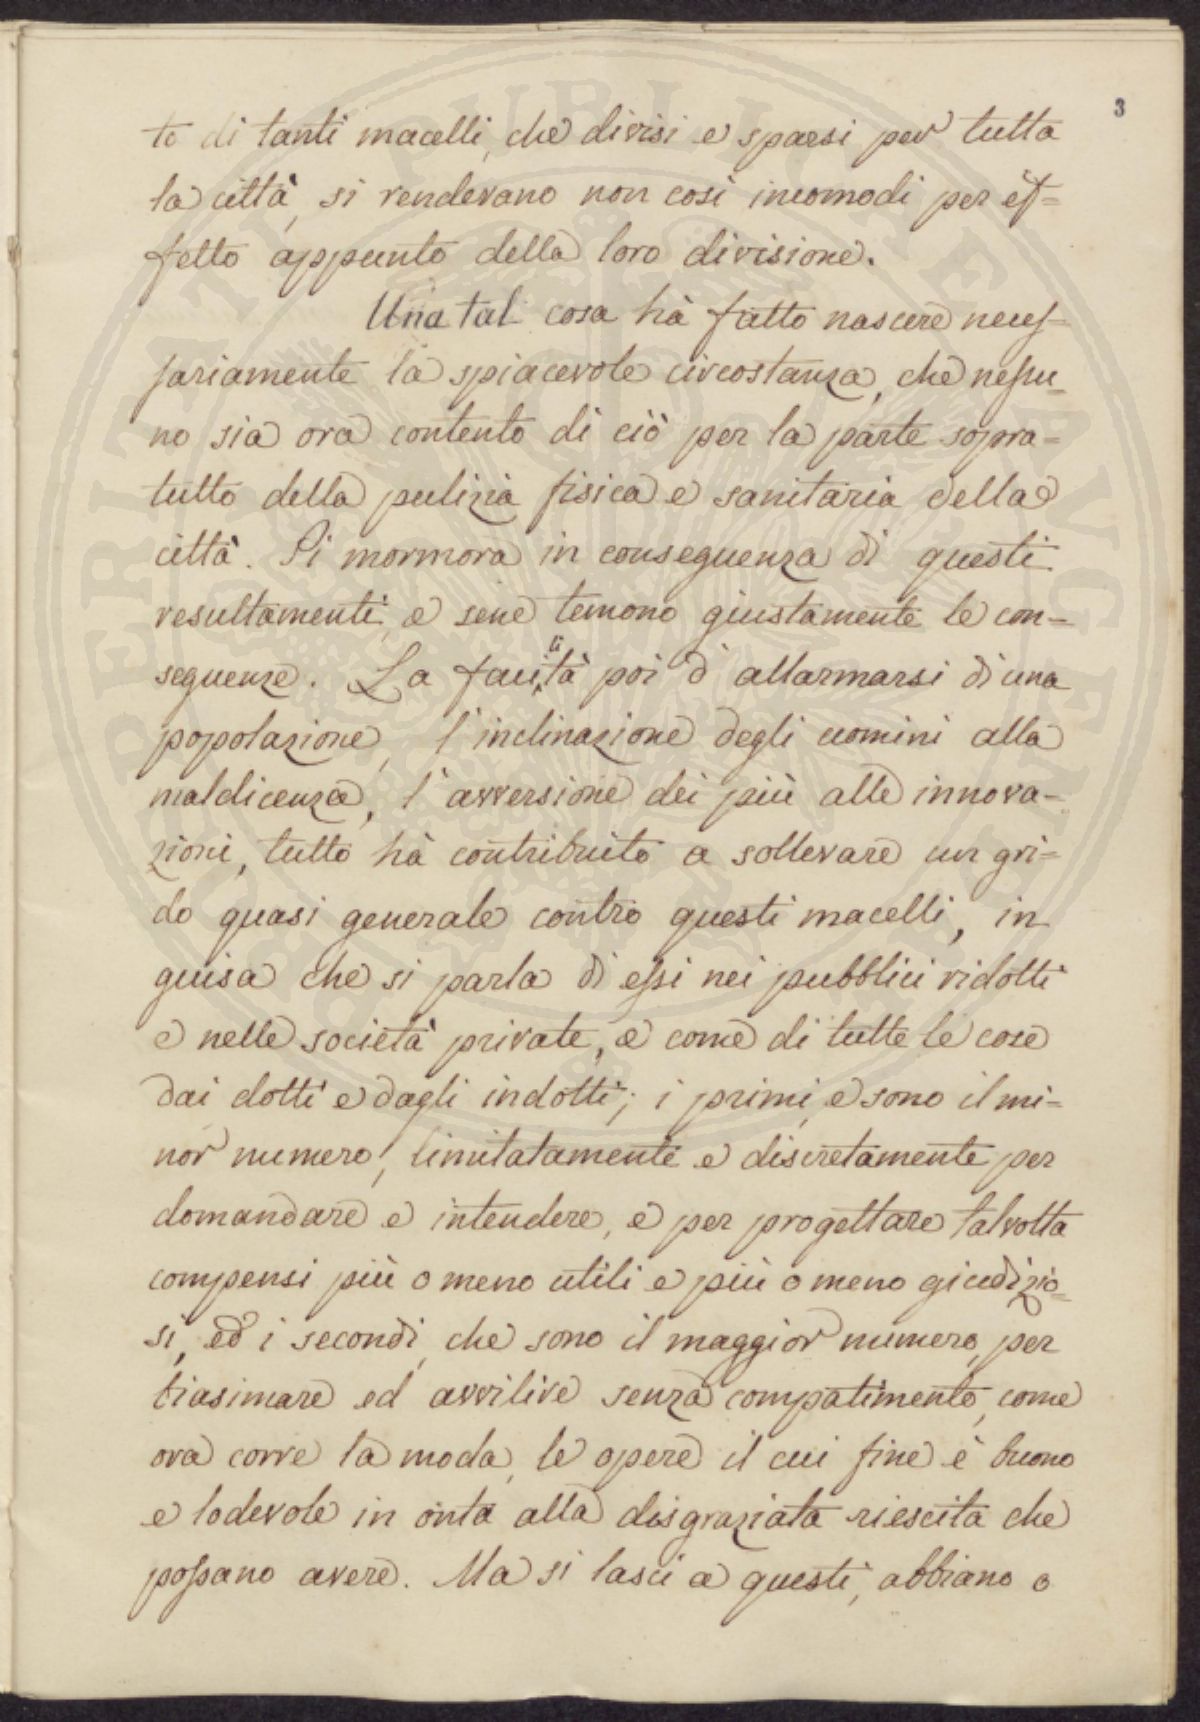 3
to di tanti macelli, che divisi e sparsi per tutta
la città, si rendevano non così incomodi per ef=
fetto appunto della loro divisione.
Una tal cosa hà fatto nascere neceſ=
sariamente la spiacevole circostanza, che neſsu=
no sia ora contento di ciò per la parte sopra=
tutto della pulizia fisica e sanitaria della
città. Si mormora in conseguenza di questi
resultamenti, e sene temono giustamente le con=
seguenze. La facilità poi d'allarmarsi di una
popolazione, l'inclinazione degli uomini alla
maldicenza, l'avversione dei più alle innova=
zioni, tutto hà contribuito a sollevare un gri=
do quasi generale contro questi macelli, in
guisa che si parla di eſsi nei pubblici ridotti
e nelle società private, e come di tutte le cose
dai dotti e dagli indotti; i primi, e sono il mi=
nor numero, limitatamente e discretamente per
domandare e intendere, e per progettare talvolta
compensi più o meno utili e più o meno giudizio=
si, ed i secondi, che sono il maggior numero, per
biasimare ed avvilire senza compatimento, come
ora corre la moda, le opere il cui fine è buono
e lodevole in onta alla disgraziata riescita che
poſsano avere. Ma si lasci a questi, abbiano o